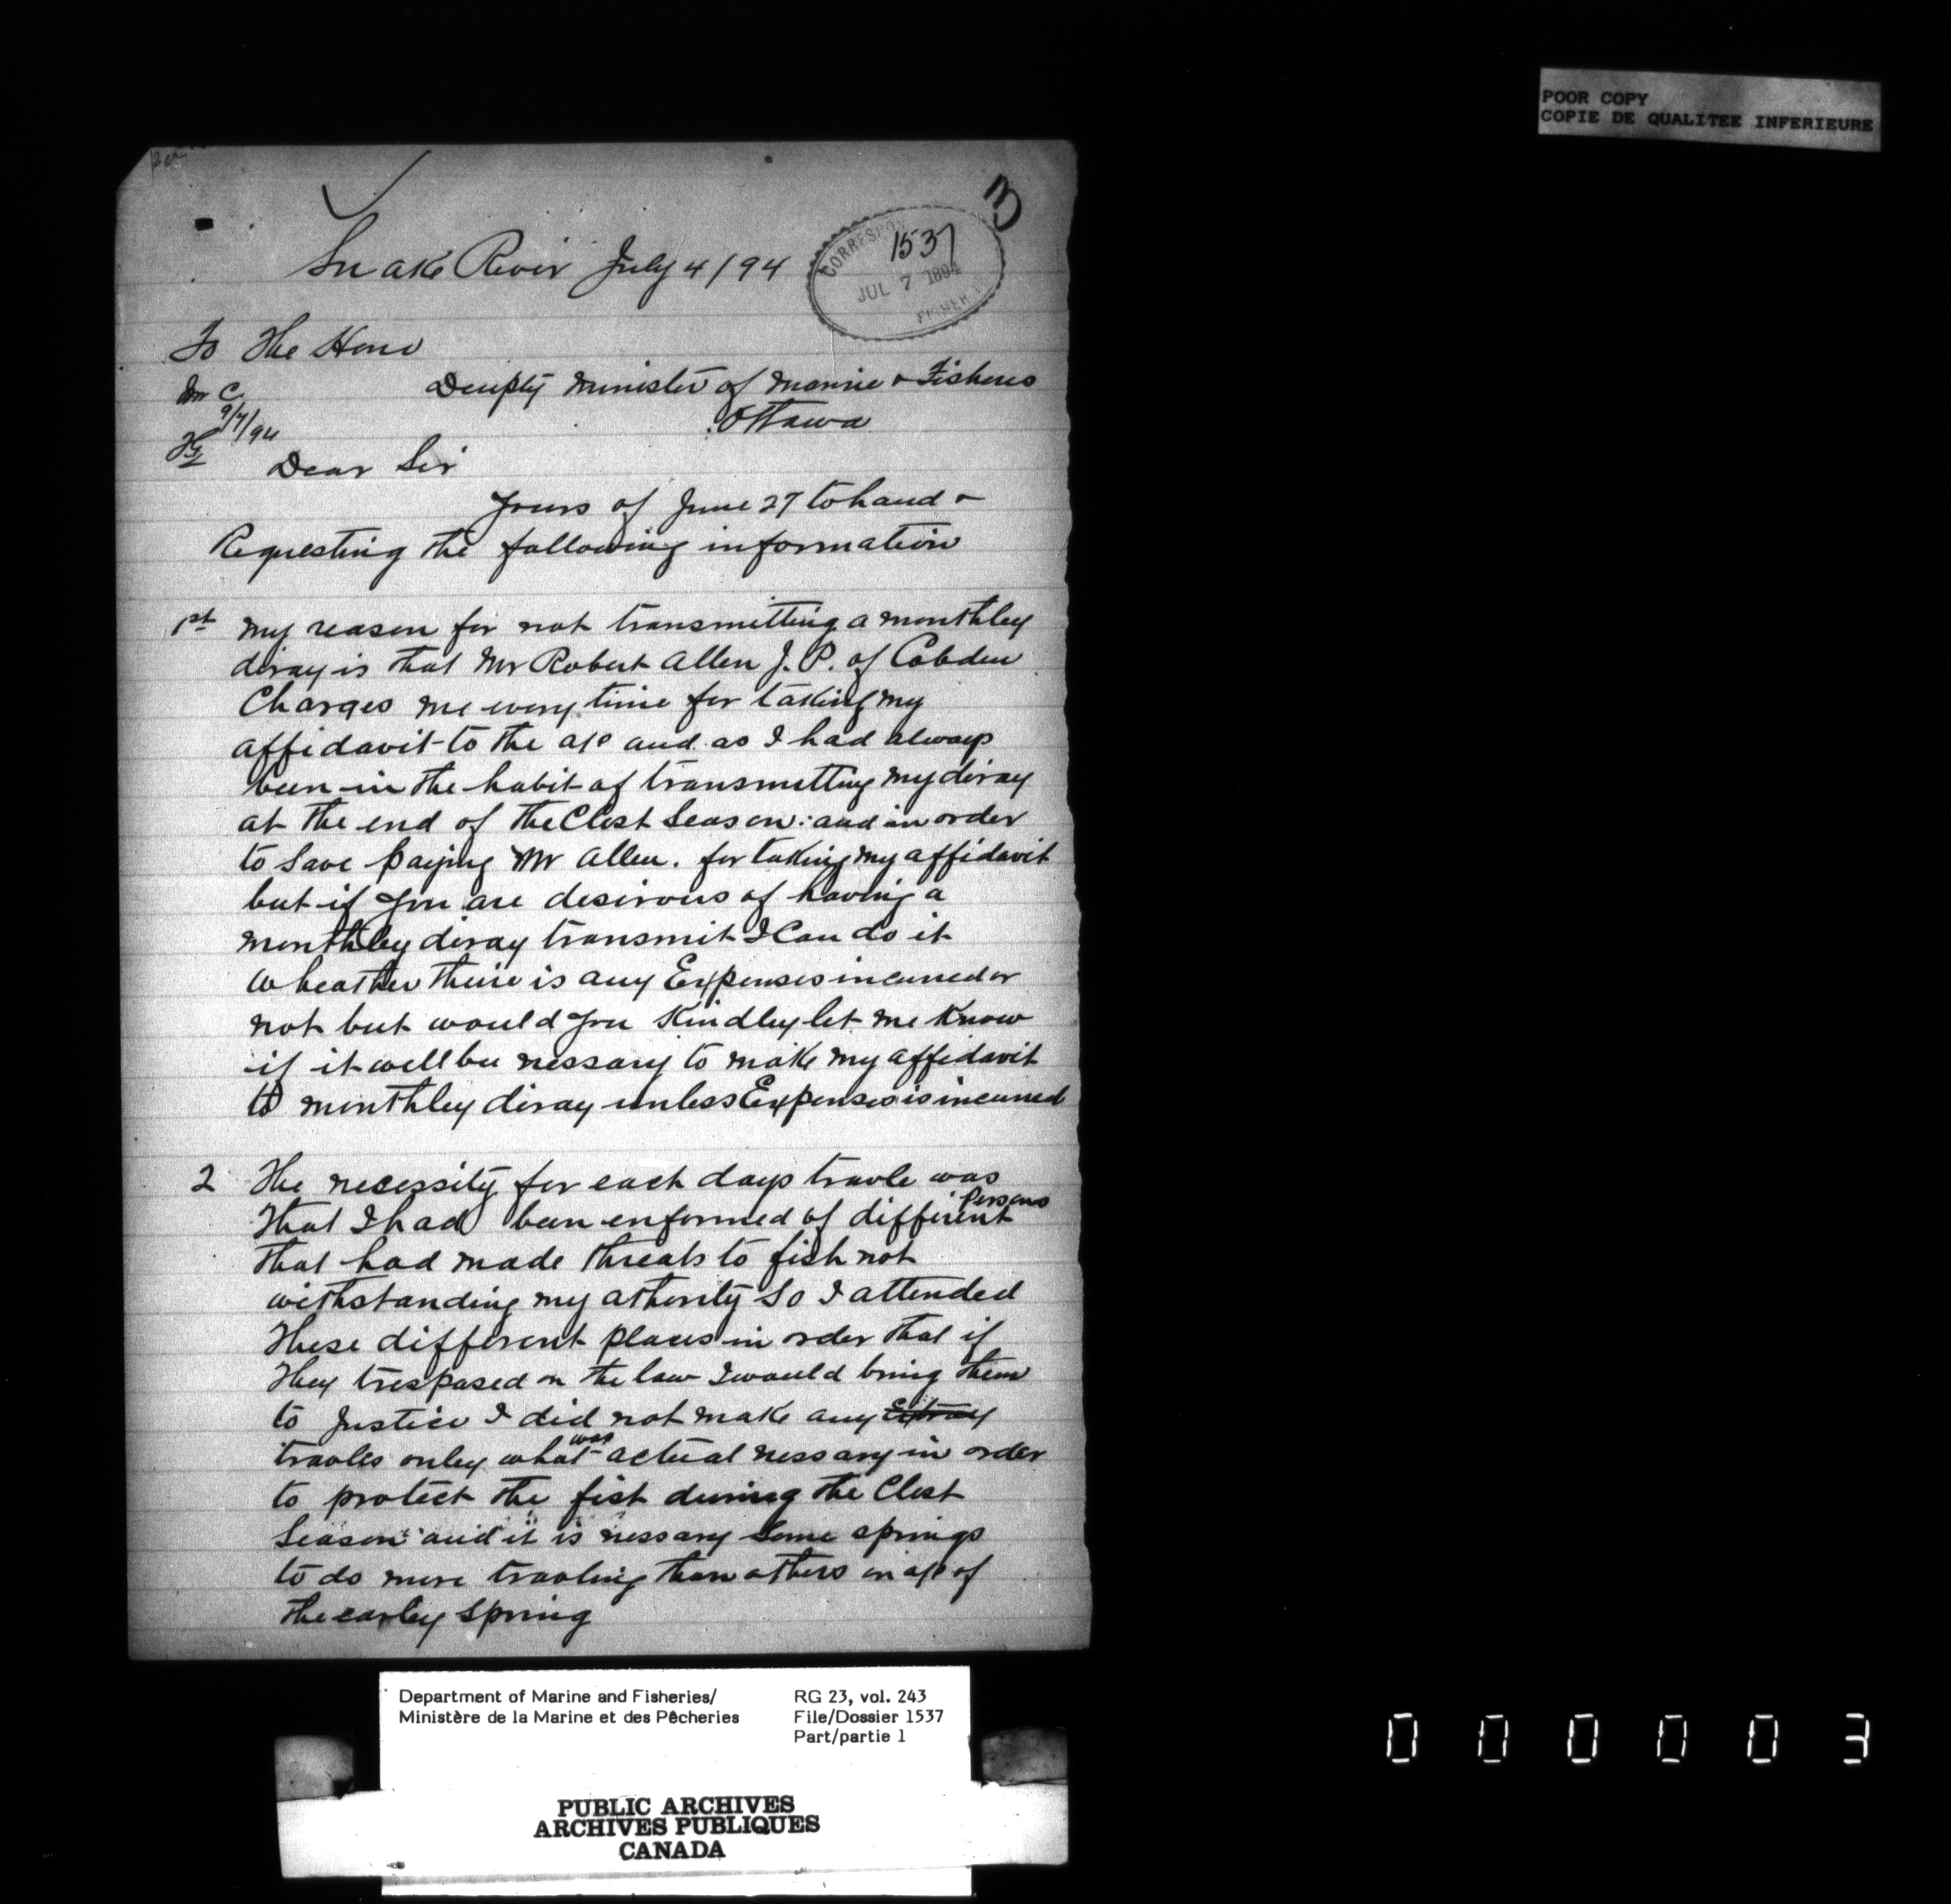 POOR COPY
COPIE DE QUALITEE INFERIEURE
3
CORRESPON
1537
JUL 7 1894
FISHERIES
Snake River July 4/94
To The Hono
Deupty Minister of Marine & Fisheres
Ottawa
Mr C.
9/7/94
Dear Sir
Yours of June 27 to hand &
Requesting the following information
1st my reason for not transmitting a monthley
diray is that Mr Robert Allen J. P. of Cobden
Charges me every time for taking my
affidavit to the a/c and as I had always
been in the habit of transmitting my diray
at the end of the Clost Season: and in order
to save paying Mr Allen. for taking my affidavit
but if you are desirous of having a
monthley diray transmit I Can do it
wheather thire is any Expenses incurred or
not but would you Kindley let me Know
if it will be nessary to make my affidavit
to monthley diray unless Expenses is incurred
2 The necessity for each days travle was
that I had been enformed of different Persons
that had made threats to fish not
withstanding my athority So I attended
These different places in order that if
They tresspased on the law I would bring them
to Justice I did not make any Extray
travles onley what was actual nessary in order
to protect the fist during the Clost
Season and it is nessary some springs
to do more travling than others on a/c of
the earley Spring
Department of Marine and Fisheries/
Ministère de la Marine et des Pêcheries
RG 23, vol. 243
File/Dossier 1537
Part/partie 1
PUBLIC ARCHIVES
ARCHIVES PUBLIQUES
CANADA
000003